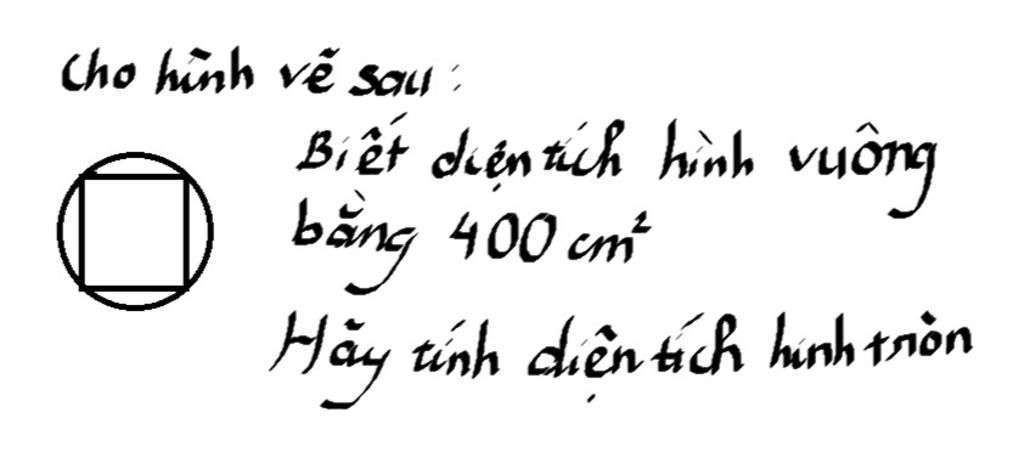 Cho hình vẽ sau :
Biết diện tích hình vuông
bằng 400 cm²
Hãy tính diện tích hình tròn